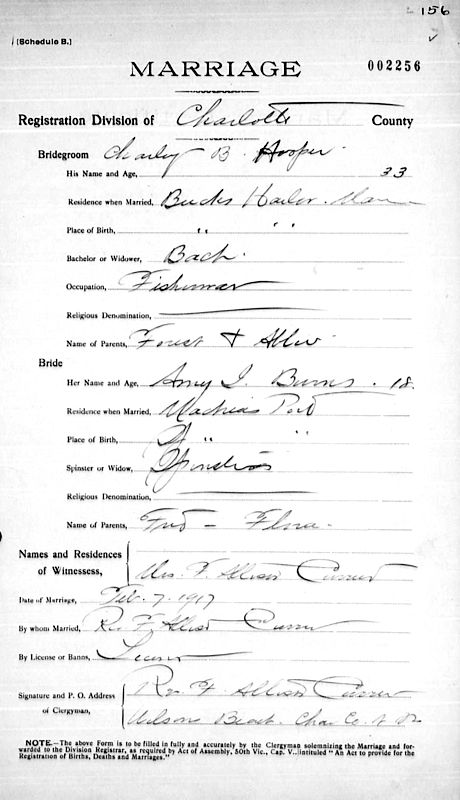 156
[Schedule B.]
MARRIAGE 002256
Registration Division of Charlotte County
Bridegroom Charley B. Hooper
His Name and Age, 33
Residence when Married, Bucks Harbor
Place of Birth, " "
Bachelor or Widower, Bach.
Occupation, Fisherman
Religious Denomination,
Name of Parents, Forest + Abbie
Bride
Her Name and Age, Amy I. Burns. 18.
Residence when Married, Machias Port
Place of Birth, " "
Spinster or Widow, Spinster
Religious Denomination,
Name of Parents, Fred - Flora.
Names and Residences
of Witnessess, Mrs. F. Allison Currier
Date of Marriage, Feb. 7. 1917
By whom Married, Rev F. Allison Currier
By License or Banns, License
Signature and P. O. Address Rev. F. Allison Currier
of Clergyman, Wilsons Beach. Char Co. N. B.
NOTE.—The above Form is to be filled in fully and accurately by the Clergyman solemnizing the Marriage and for-
warded to the Division Registrar, as required by Act of Assembly, 50th Vic., Cap. V., intituled "An Act to provide for the
Registration of Births, Deaths and Marriages."